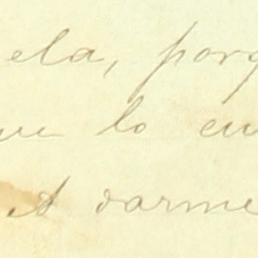 ela, porq
ue lo en
A darme